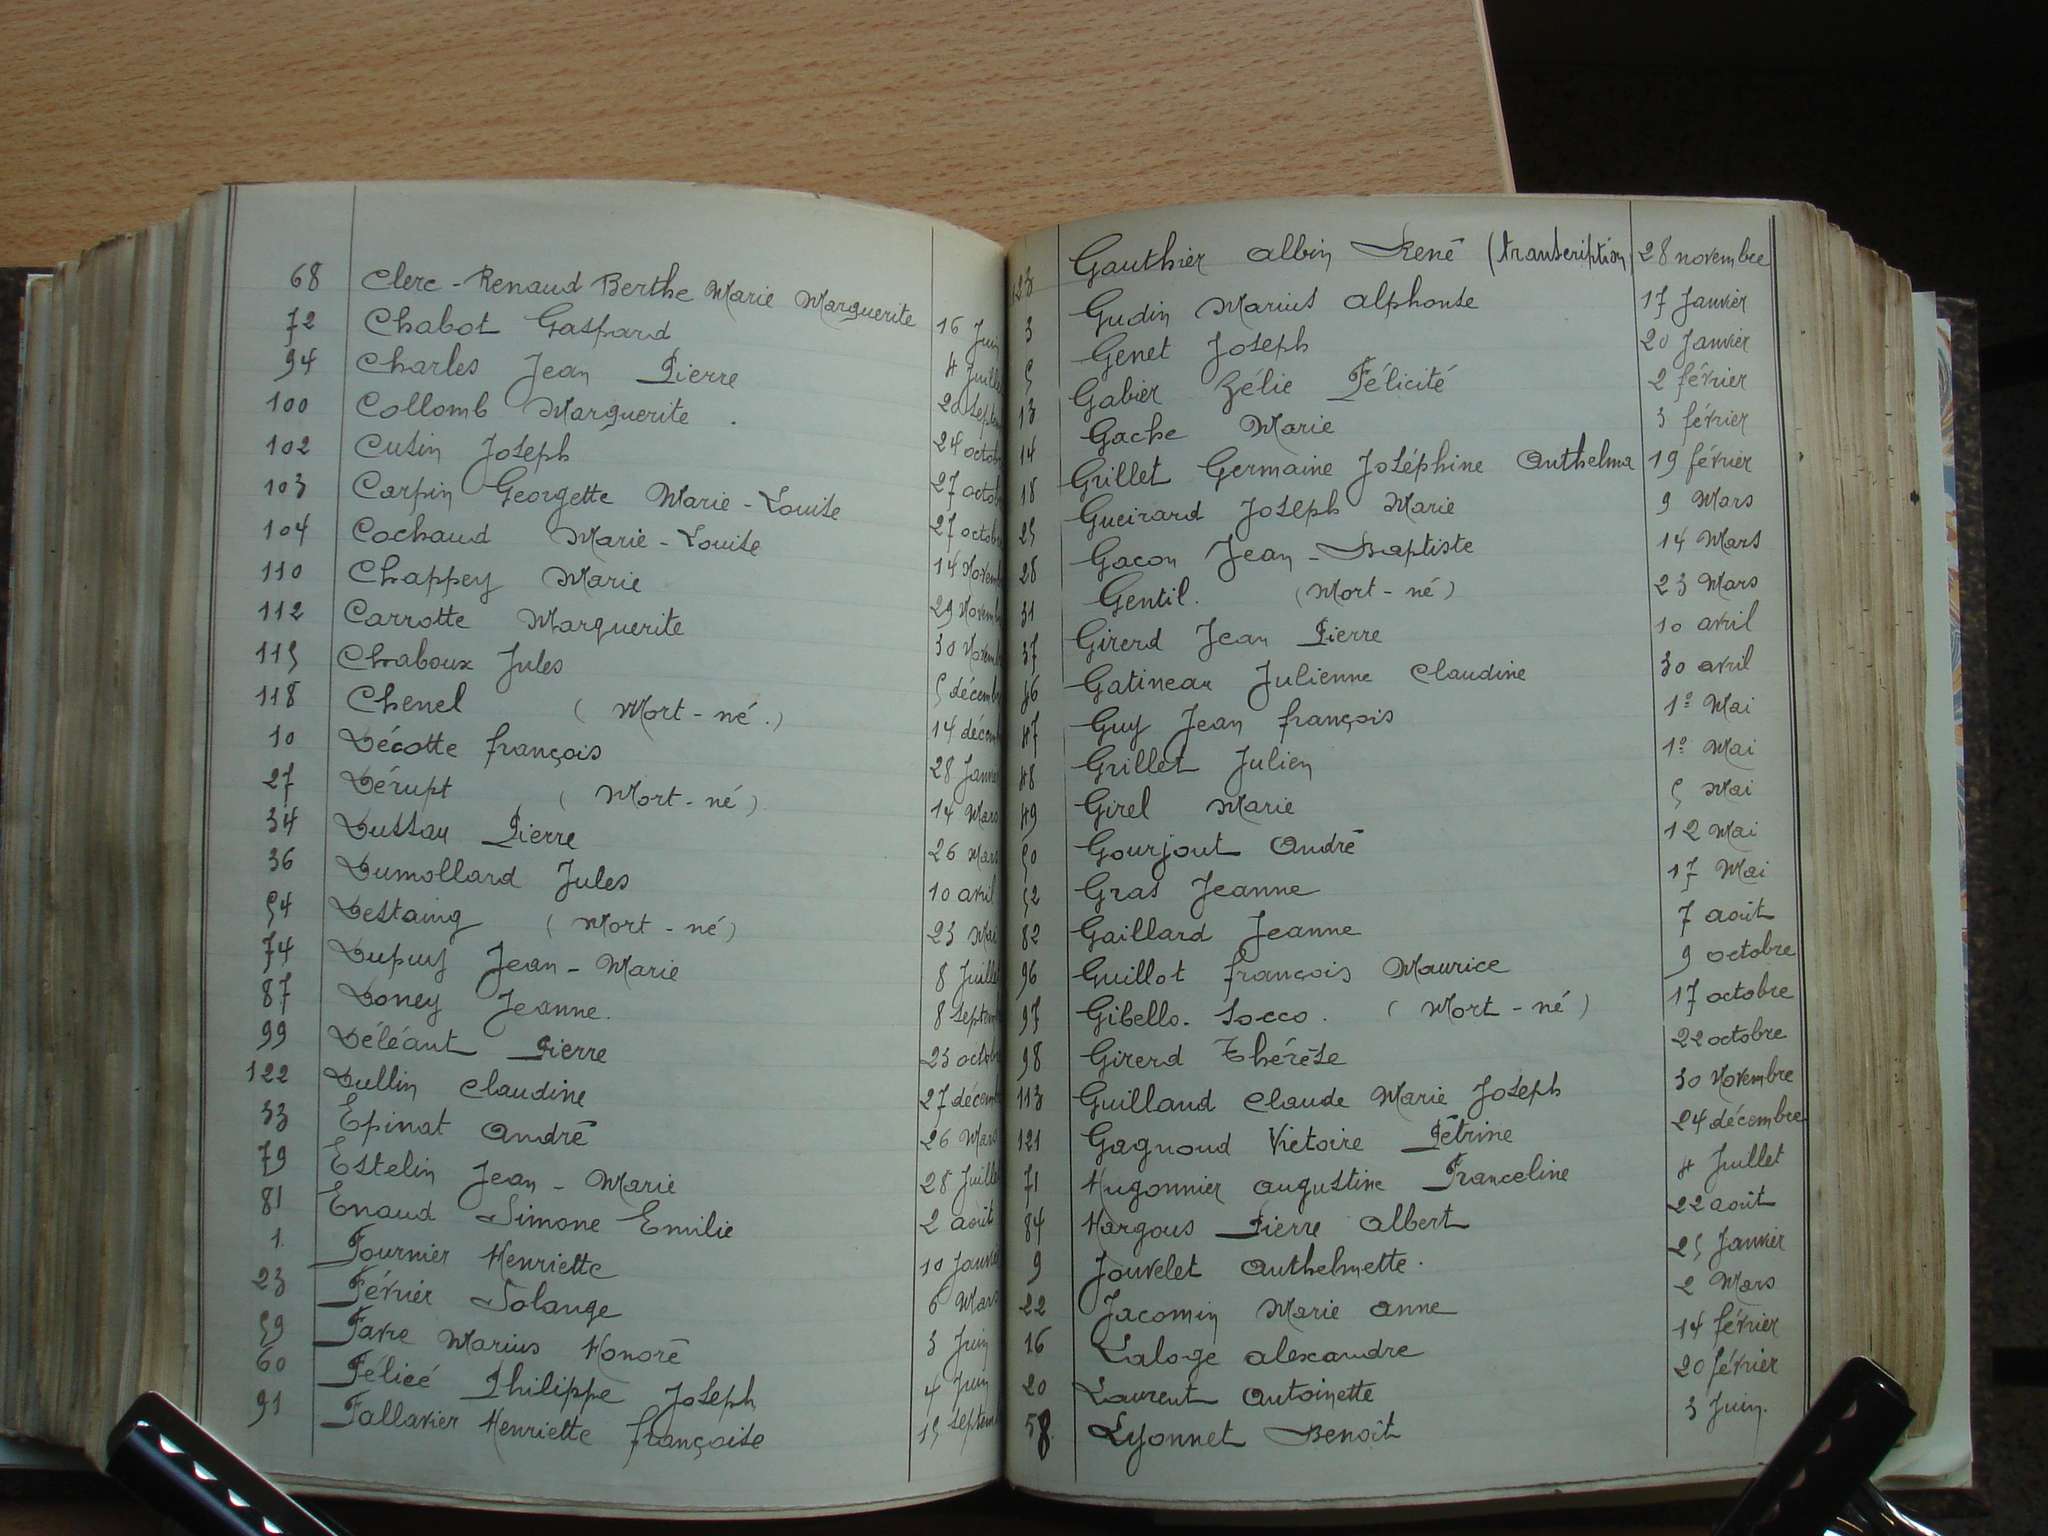 68 Clerc-Renaud Berthe Marie Marguerite 16 Juin
72 Chabot Gaspard 4 Juillet
94 Charles Jean Pierre 20 Septem
100 Collomb Marguerite. 24 octob
102 Cusin Joseph 27 octob
103 Carpin Georgette Marie-Louise 27 octob
104 Cochaud Marie-Louise 14 Novem
110 Chappey Marie 29 Novem
112 Carrotte Marguerite 30 Novem
115 Chaboux Jules 5 décemb
118 Chenel (Mort-né.) 14 décem
10 Décotte françois 28 Janvier
27 Dérupt (Mort-né). 14 Mars
34 Dussau Pierre 26 Mars
36 Dumollard Jules 10 avril
54 Destaing (Mort-né) 23 Mai
74 Dupuy Jean-Marie 8 Juillet
87 Doney Jeanne. 8 Septem
99 Déléant Pierre 23 octob
122 Dullin Claudine 27 décemb
33 Epinat André 26 Mars
79 Estelin Jean-Marie 28 Juillet
81 Enaud Simone Emilie 2 août
1. Fournier Henriette 10 Janvier
23 Février Solange 6 Mars
59 Favre Marius Honoré 3 Juin
60 Félicé Philippe Joseph 4 Juin
91 Fallavier Henriette françoise 15 Septem
123 Gauthier Albin René (transcription) 28 novembre
3 Gudin Marius Alphonse 17 Janvier
5 Genet Joseph 20 Janvier
13 Gabier Zélie Félicité 2 février
14 Gache Marie 3 février
18 Grillet Germaine Joséphine Anthelma 19 février
25 Gueirard Joseph Marie 9 Mars
28 Gacon Jean-Baptiste 14 Mars
31 Gentil. (Mort-né) 23 Mars
37 Girerd Jean Pierre 10 avril
46 Gatineau Julienne Claudine 30 avril
47 Guy Jean françois 1º Mai
48 Grillet Julien 1º Mai
49 Girel Marie 5 Mai
50 Gourjout André 12 Mai
52 Gras Jeanne 17 Mai
82 Gaillard Jeanne 7 août
96 Guillot françois Maurice 9 octobre
97 Gibello-Socco. (Mort-né) 17 octobre
98 Girerd Thérèse 22 octobre
113 Guilland Claude Marie Joseph 30 Novembre
121 Gagnoud Victoire Pétrine 24 décembre
71 Hugonnier Augustine Franceline 4 Juillet
84 Hargous Pierre Albert 22 août
9 Jouvelet Anthelmette. 25 Janvier
22 Jacomin Marie Anne 2 Mars
16 Laloge Alexandre 14 février
20 Laurent Antoinette 20 février
58. Lyonnet Benoît 3 Juin.